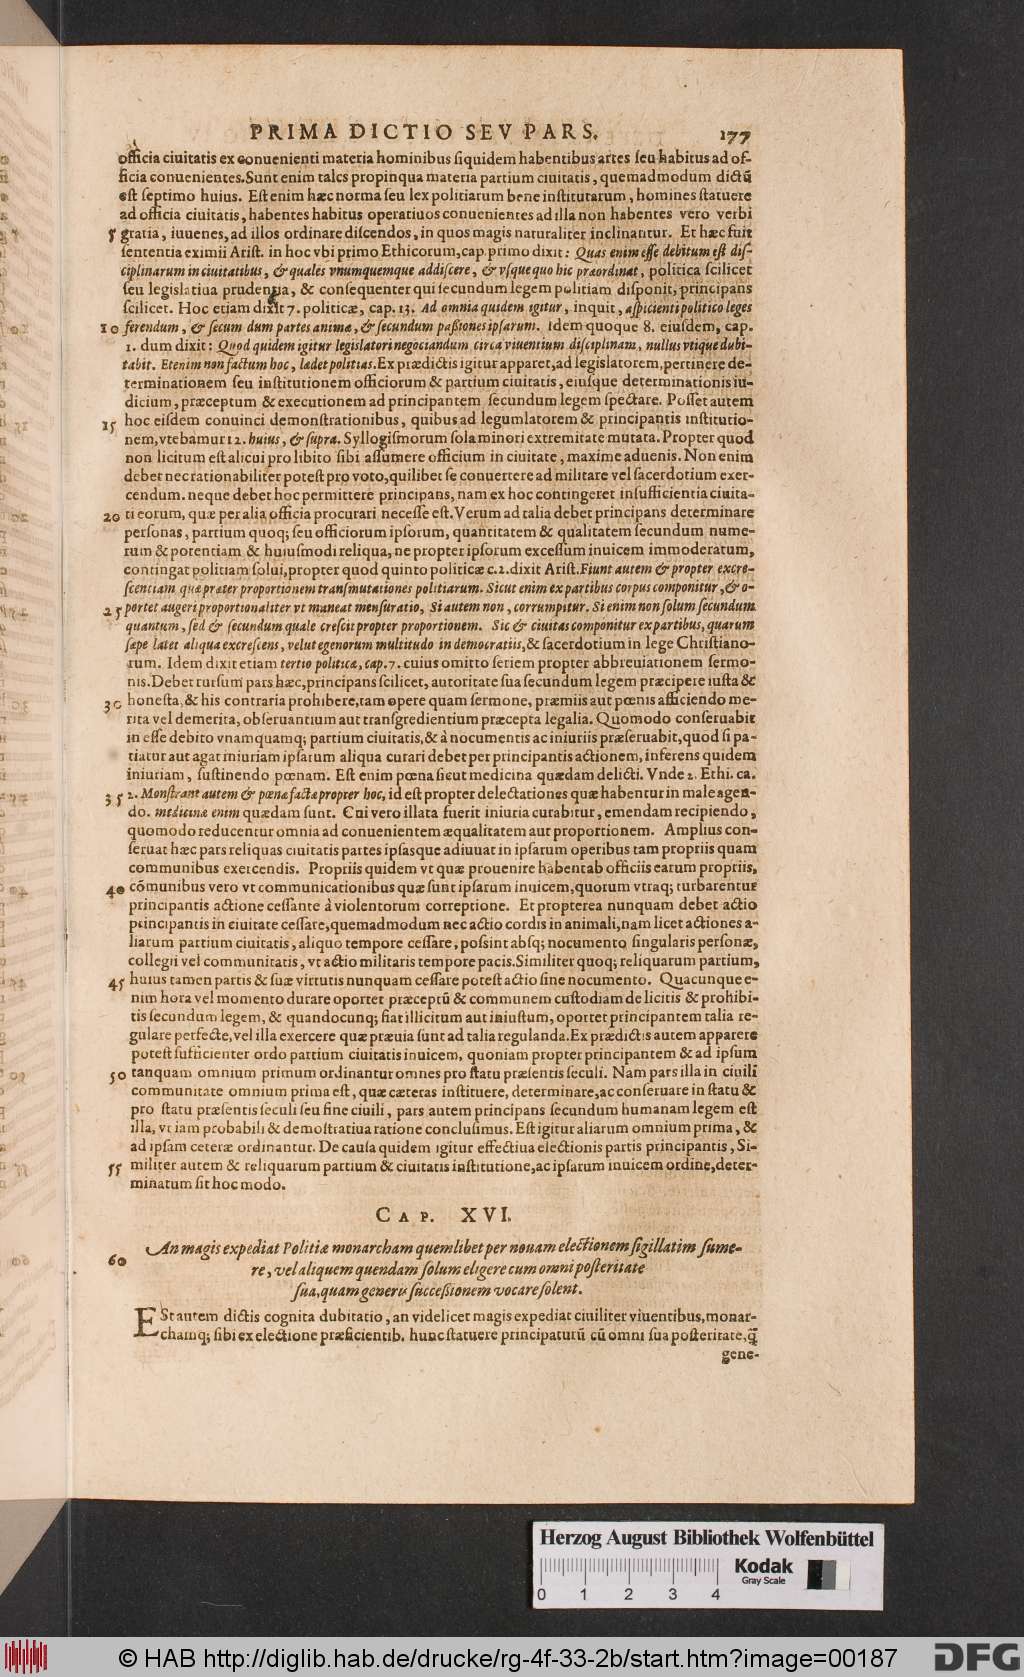 PRIMA DICTIO SEV PARS. 177
officia ciuitatis ex conuenienti materia hominibus siquidem habentibus artes seu habitus ad of-
ficia conuenientes. Sunt enim tales propinqua materia partium ciuitatis, quemadmodum dictũ
est septimo huius. Est enim hæc norma seu lex politiarum bene institutarum, homines statuere
ad officia ciuitatis, habentes habitus operatiuos conuenientes ad illa non habentes vero verbi
5 gratia, iuuenes, ad illos ordinare discendos, in quos magis naturaliter inclinantur. Et hæc fuit
sententia eximii Arist. in hoc vbi primo Ethicorum, cap. primo dixit: Quas enim esse debitum est dis-
ciplinarum in ciuitatibus, & quales vnumquemque addiscere, & vsque quo hic præordinat, politica scilicet
seu legislatiua prudentia, & consequenter qui secundum legem politiam disponit, principans
scilicet. Hoc etiam dixit 7. politicæ, cap. 13. Ad omnia quidem igitur, inquit, aspicienti politico leges
10 ferendum, & secum dum partes animæ, & secundum passiones ipsarum. Idem quoque 8. eiusdem, cap.
1. dum dixit: Quod quidem igitur legislatori negociandum circa viuentium disciplinam, nullus vtique dubi-
tabit. Etenim non factum hoc, lædet politias. Ex prædictis igitur apparet, ad legislatorem, pertinere de-
terminationem seu institutionem officiorum & partium ciuitatis, eiusque determinationis iu-
dicium, præceptum & executionem ad principantem secundum legem spectare. Posset autem
15 hoc eisdem conuinci demonstrationibus, quibus ad legumlatorem & principantis institutio-
nem, vtebamur 12. huius, & supra. Syllogismorum sola minori extremitate mutata. Propter quod
non licitum est alicui pro libito sibi assumere officium in ciuitate, maxime aduenis. Non enim
debet nec rationabiliter potest pro voto, quilibet se conuertere ad militare vel sacerdotium exer-
cendum. neque debet hoc permittere principans, nam ex hoc contingeret insufficientia ciuita-
20 ti eorum, quæ per alia officia procurari necesse est. Verum ad talia debet principans determinare
personas, partium quoq; seu officiorum ipsorum, quantitatem & qualitatem secundum nume-
rum & potentiam & huiusmodi reliqua, ne propter ipsorum excessum inuicem immoderatum,
contingat politiam solui, propter quod quinto politicæ c. 2. dixit Arist. Fiunt autem & propter excre-
scentiam quæ præter proportionem transmutationes politiarum. Sicut enim ex partibus corpus componitur, & o-
25 portet augeri proportionaliter vt maneat mensuratio, Si autem non, corrumpitur. Si enim non solum secundum
quantum, sed & secundum quale crescit propter proportionem. Sic & ciuitas componitur ex partibus, quarum
sæpe latet aliqua excrescens, velut egenorum multitudo in democratiis, & sacerdotium in lege Christiano-
rum. Idem dixit etiam tertio politicæ, cap. 7. cuius omitto seriem propter abbreuiationem sermo-
nis. Debet rursum pars hæc, principans scilicet, autoritate sua secundum legem præcipere iusta &
30 honesta, & his contraria prohibere, tam opere quam sermone, præmiis aut pœnis afficiendo me-
rita vel demerita, obseruantium aut transgredientium præcepta legalia. Quomodo conseruabit
in esse debito vnamquamq; partium ciuitatis, & à nocumentis ac iniuriis præseruabit, quod si pa-
tiatur aut agat iniuriam ipsarum aliqua curari debet per principantis actionem, inferens quidem
iniuriam, sustinendo pœnam. Est enim pœna sicut medicina quædam delicti. Vnde 2. Ethi. ca.
35 2. Monstrant autem & pœnæ factæ propter hoc, id est propter delectationes quæ habentur in male agen-
do. medicinæ enim quædam sunt. Cui vero illata fuerit iniuria curabitur, emendam recipiendo,
quomodo reducentur omnia ad conuenientem æqualitatem aut proportionem. Amplius con-
seruat hæc pars reliquas ciuitatis partes ipsasque adiuuat in ipsarum operibus tam propriis quam
communibus exercendis. Propriis quidem vt quæ prouenire habent ab officiis earum propriis,
40 cõmunibus vero vt communicationibus quæ sunt ipsarum inuicem, quorum vtraq; turbarentur
principantis actione cessante à violentorum correptione. Et propterea nunquam debet actio
principantis in ciuitate cessare, quemadmodum nec actio cordis in animali, nam licet actiones a-
liarum partium ciuitatis, aliquo tempore cessare, possint absq; nocumento singularis personæ,
collegii vel communitatis, vt actio militaris tempore pacis. Similiter quoq; reliquarum partium,
45 huius tamen partis & suæ virtutis nunquam cessare potest actio sine nocumento. Quacunque e-
nim hora vel momento durare oportet præceptũ & communem custodiam de licitis & prohibi-
tis secundum legem, & quandocunq; fiat illicitum aut iniustum, oportet principantem talia re-
gulare perfecte, vel illa exercere quæ præuia sunt ad talia regulanda. Ex prædictis autem apparere
potest sufficienter ordo partium ciuitatis inuicem, quoniam propter principantem & ad ipsum
50 tanquam omnium primum ordinantur omnes pro statu præsentis seculi. Nam pars illa in ciuili
communitate omnium prima est, quæ cæteras instituere, determinare, ac conseruare in statu &
pro statu præsentis seculi seu fine ciuili, pars autem principans secundum humanam legem est
illa, vt iam probabili & demostratiua ratione conclusimus. Est igitur aliarum omnium prima, &
ad ipsam ceteræ ordinantur. De causa quidem igitur effectiua electionis partis principantis, Si-
55 militer autem & reliquarum partium & ciuitatis institutione, ac ipsarum inuicem ordine, deter-
minatum sit hoc modo.
CAP. XVI.
An magis expediat Politiæ monarcham quemlibet per nouam electionem sigillatim sume-
60 re, vel aliquem quendam solum eligere cum omni posteritate
sua, quam generis successionem vocare solent.
ESt autem dictis cognita dubitatio, an videlicet magis expediat ciuiliter viuentibus, monar-
chamq; sibi ex electione præficientib. hunc statuere principaturũ cũ omni sua posteritate, q̃
gene-
Herzog August Bibliothek Wolfenbüttel
Kodak
Gray Scale
0 1 2 3 4
© HAB http://diglib.hab.de/drucke/rg-4f-33-2b/start.htm?image=00187
DFG